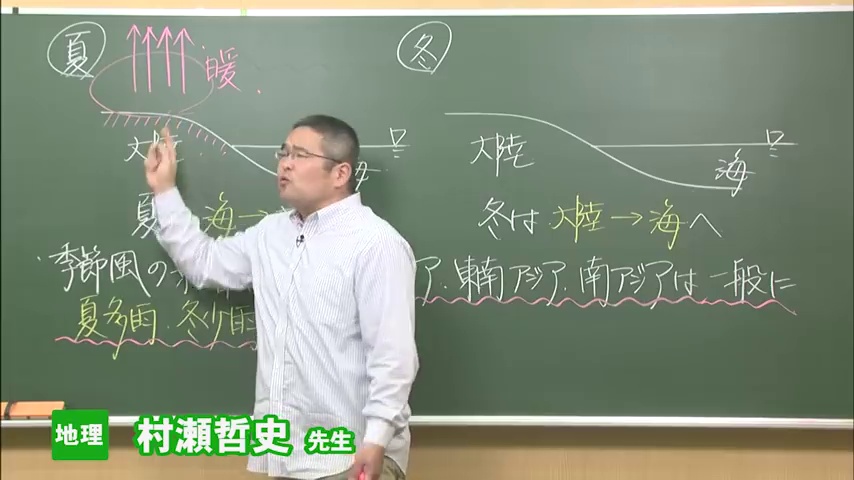 夏
暖
冬
大陸
大陸
海
夏 海→
冬は大陸→海へ
季節風の
ア.東南アジア.南アジアは一般に
夏多雨.冬少雨
地理 村瀬哲史 先生